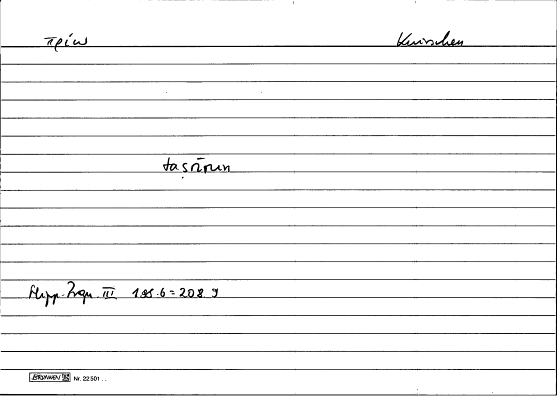 πρίω Knirschen
taṣrīrun
Hipp. Progn. III 195.6 = 208.9
BRUNNEN Nr. 22 501 ..